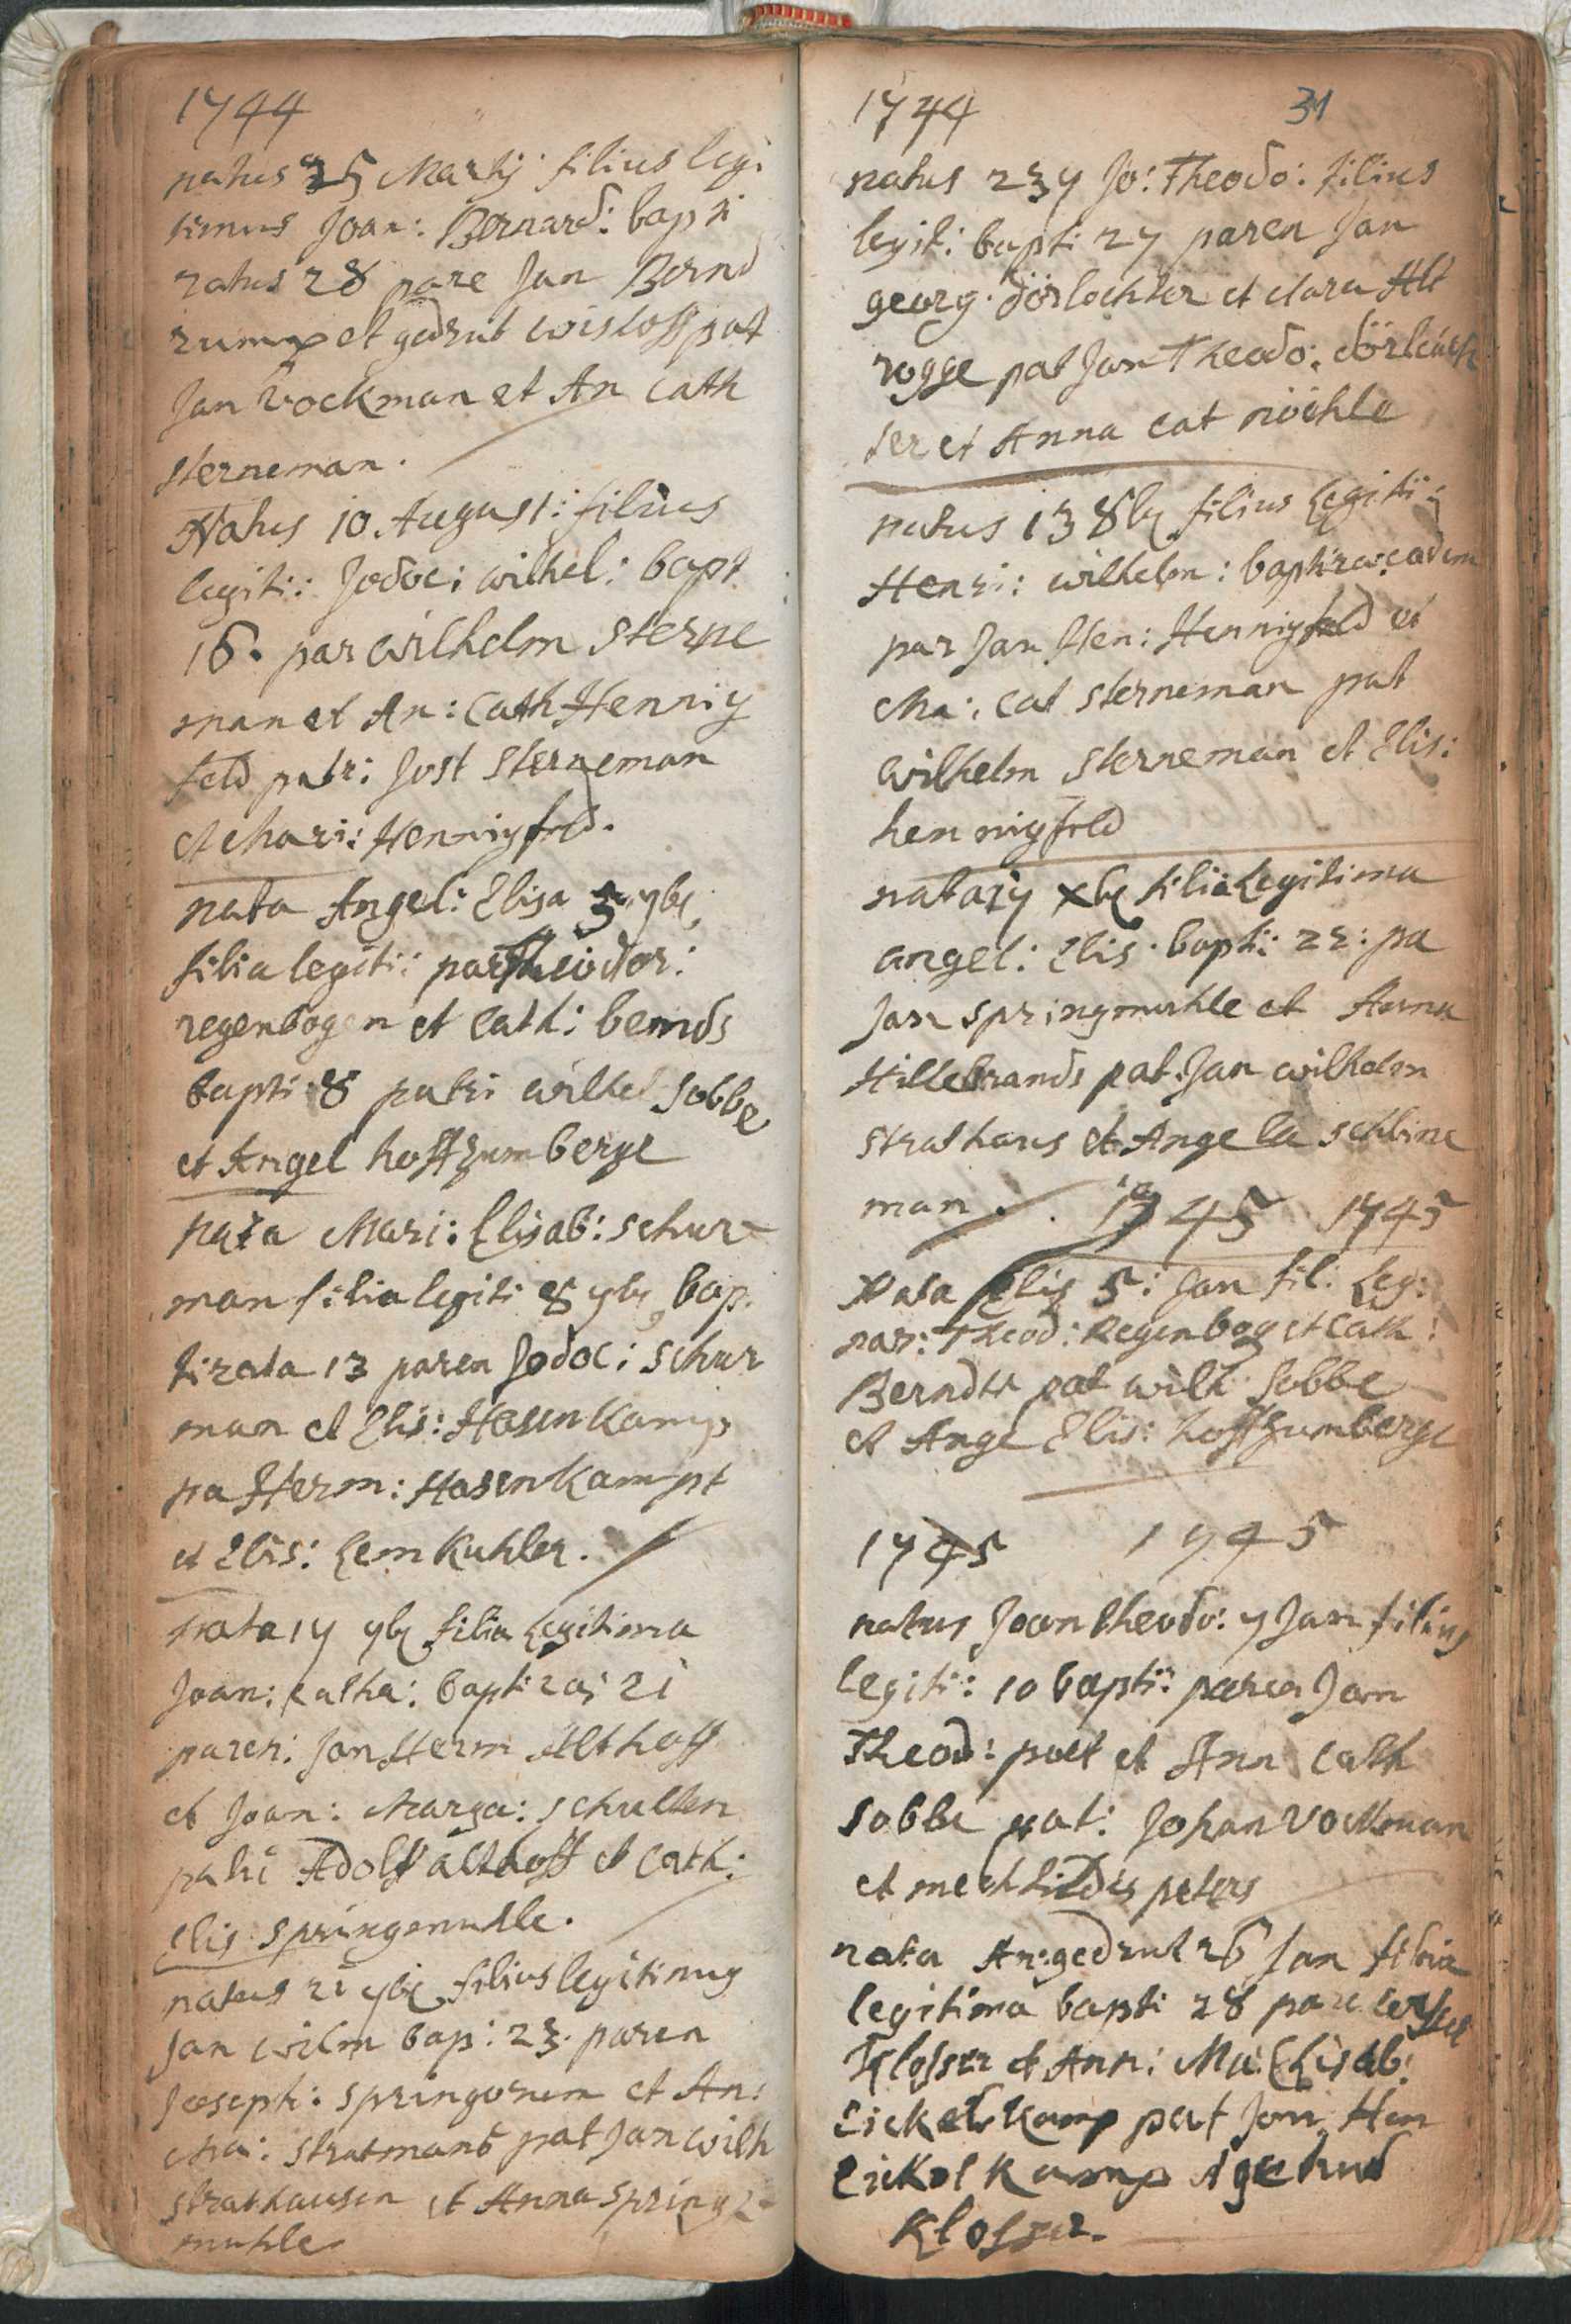 1744
natus 25 Martij filius legi
timus Joan: Bernard: bapti
zatus 28 pare Jan Bernd
rump et gedrut wisloff pat
Jan Vockman et An Cath
sterneman.
Natus 10. August: filius
legiti: Jodoc: wilhel: bapt
16. par wilhelm Sterne
man et An: Cath Hennig
feld patr: Jost Sterneman
et Mari: Hennigfeld.
nata Angel: Elisa 5 7br
filia legiti: par Theodor:
regenbogen et Cath: bernds
bapti 8 patri wilhel Sobbe
et Angel hoffzumberge
nata Mari: Elisab: schur-
man filia legiti 8 7br bap.
tizata 13 paren Jodoc: Schur
man et Elis: Hasenkamp
pa Herm: Hasenkampt
et Elis: Lemkuhler.
nata 17 7br filia legitima
Joan: Catha: baptizaj 21
paren: Jan Herm Althoff
et Joan: Marga: schulten
patri Adolf althoff et Cath:
Elis: springemuhle.
natus 21 7br filius legitimus
Jan wilm bap: 23. paren
Joseph: springorum et An:
Ma: Stratmans pat Jan wilh
strathausen et Anna spring
muhle
1744 31
natus 23 7 Jo: Theodo: filius
legit: bapti 27 paren Jan
georg. dörlochter et clara Alt
rogge pat Jan Theodo: dörleuch
ter et Anna cat möhle
natus 13 8br filius legiti:
Henri: wilhelm: baptizaj eadem
par Jan Hen: Hennigfeld et
Ma: Cat sterneman pat
wilhelm sterneman et Elis:
hennigfeld
nata 17 xbr filia legitima
angel: Elis. bapti: 22: pa
Jan springmuhle et Anna
Hillebrands pat. Jan wilhelm
strathaus et Angela schline
man. 1745 1745
Nata Elis 5: Jan fil: Leg:
par: Theod: Regenbog et Cath:
Berndts pat wilh Sobbe
et Ange Elis: hoffzumberge
1745 1745
natus Joan theodo: 7 Jan filius
legiti: 10 bapti: paren Jan
Theod: pott et Ann Cath
Sobbe pat: Johan Vockman
et mechtildis peters
nata An: gedrut 26 Jan filia
legitima bapti 28 pare
Klosser et Ann: Ma: Elisab:
Eickelkamp pat Jan Hen
Eickelkamp et gedrud
Klosser.